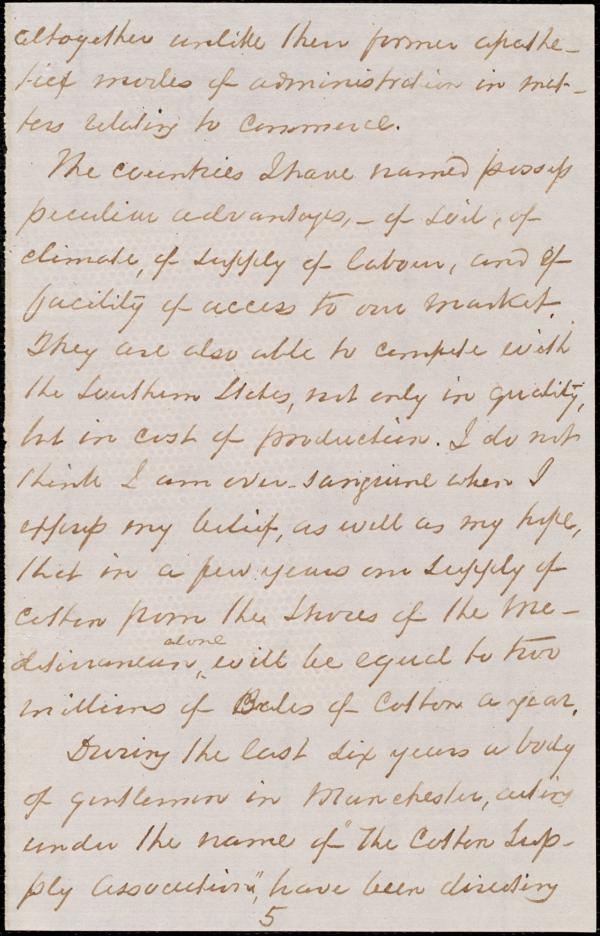 altogether unlike their former apathe-
tick modes of administration in mat-
ters relating to commerce.
The countries I have named possess
peculiar advantages, - of soil, of
climate, of supply of labour, and of
facility of access to our market.
They are also able to compete with
the Southern States, not only in quality,
but in cost of production. I do not
think I am over-sanguine when I
express my belief, as well as my hope,
that in a few years our supply of
cotton from the shores of the Me-
alone
diterranean, will be equal to two
millions of Bales of Cotton a year.
During the last six years a body
of gentlemen in Manchester, acting
under the name of "The Cotton Sup-
ply Association", have been directing
5